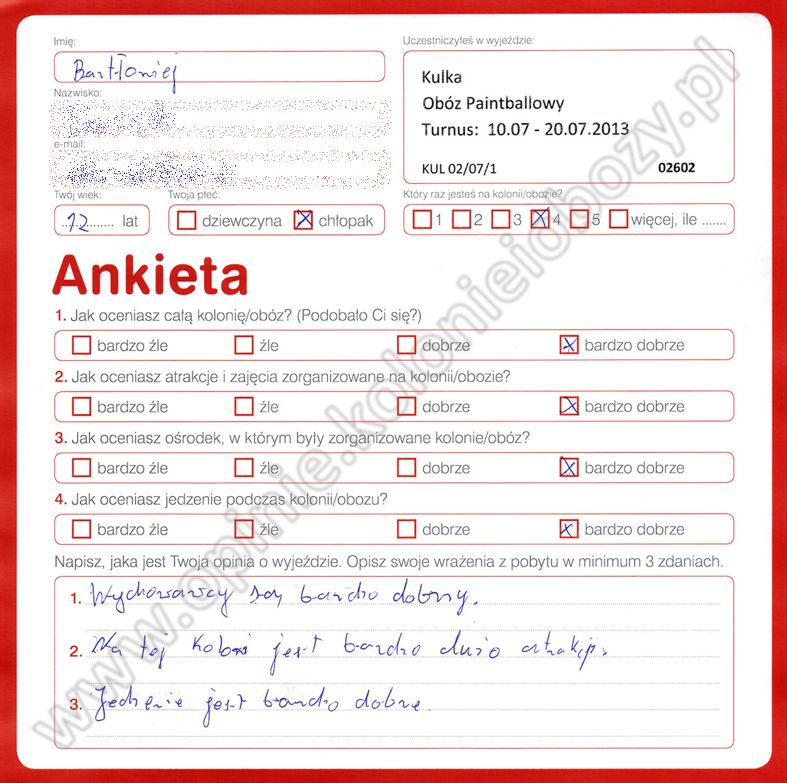 Imię:
Uczestniczyłeś w wyjeździe:
Bartłomiej
Kulka
Obóz Paintballowy
Turnus: 10.07 - 20.07.2013
KUL 02/07/1 02602
Nazwisko:
e-mail:
Twój wiek: Twoja płeć: Który raz jesteś na kolonii/obozie?
12 lat dziewczyna chłopak 1 2 3 4 5 więcej, ile .......
Ankieta
1. Jak oceniasz całą kolonię/obóz? (Podobało Ci się?)
bardzo źle źle dobrze bardzo dobrze
2. Jak oceniasz atrakcje i zajęcia zorganizowane na kolonii/obozie?
bardzo źle źle dobrze bardzo dobrze
3. Jak oceniasz ośrodek, w którym były zorganizowane kolonie/obóz?
bardzo źle źle dobrze bardzo dobrze
4. Jak oceniasz jedzenie podczas kolonii/obozu?
bardzo źle źle dobrze bardzo dobrze
Napisz, jaka jest Twoja opinia o wyjeździe. Opisz swoje wrażenia z pobytu w minimum 3 zdaniach.
1. Wychowawcy są bardzo dobrzy.
2. Na tej koloni jest bardzo dużo atrakcji.
3. Jedzenie jest bardzo dobre.
www.opinie.kolonieiobozy.pl